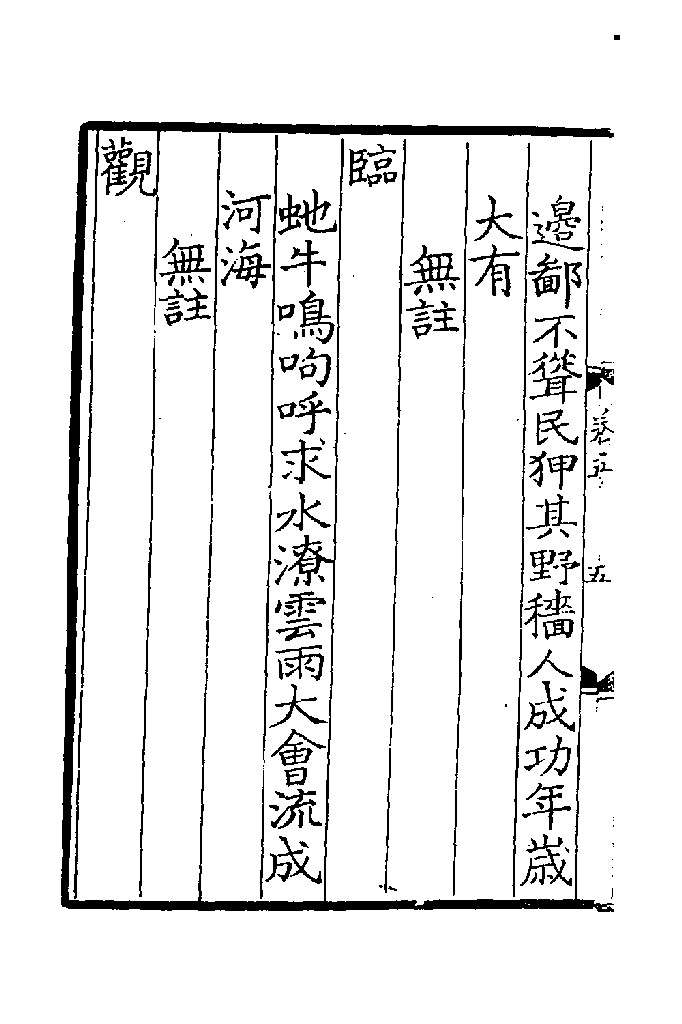 卷五
五
邊鄙不聳民狎其野穡人成功年歲
大有
無註
臨
虵牛鳴呴呼求水潦雲雨大會流成
河海
無註
觀